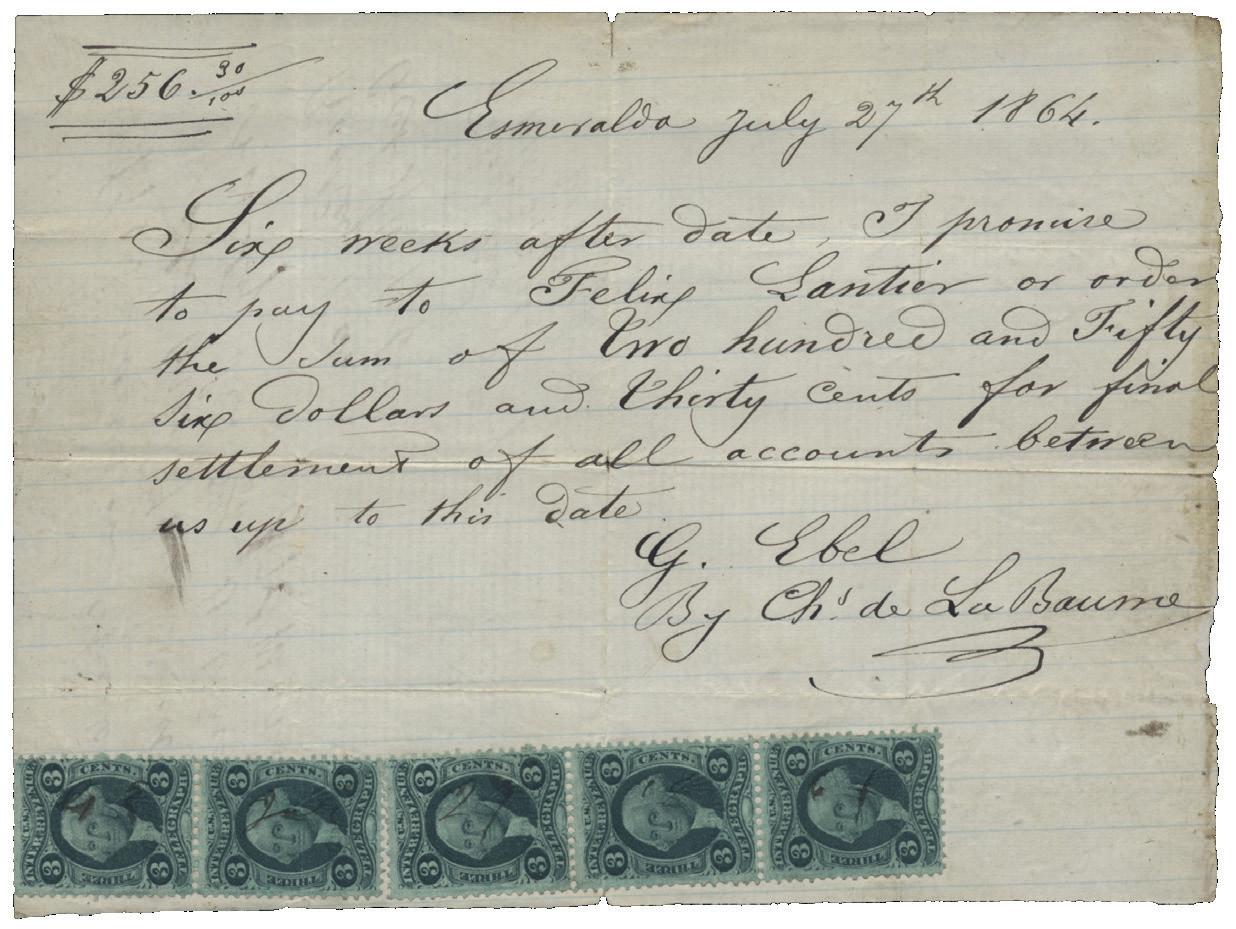 $256.30/100
Esmeralda July 27th 1864.
Six weeks after date, I promise
to pay to Felix Lantier or order
the sum of Two hundred and Fifty
six dollars and Thirty cents for final
settlement of all accounts between
us up to this date
G. Ebel
By Chs. de La Baume
3 CENTS. 3 U.S. INTER.REVENUE TELEGRAPH 3 THREE 3
3 CENTS. 3 U.S. INTER.REVENUE TELEGRAPH 3 THREE 3
3 CENTS. 3 U.S. INTER.REVENUE TELEGRAPH 3 THREE 3
3 CENTS. 3 U.S. INTER.REVENUE TELEGRAPH 3 THREE 3
3 CENTS. 3 U.S. INTER.REVENUE TELEGRAPH 3 THREE 3